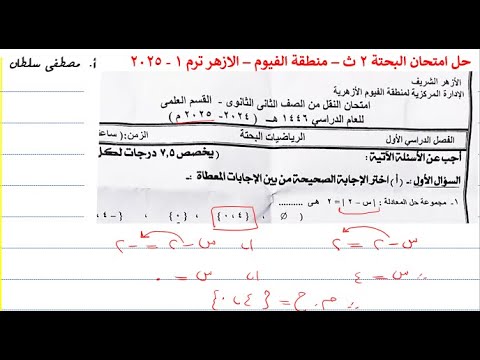 حل امتحان البحتة ٢ ث – منطقة الفيوم – الازهر ترم ١ - ٢٠٢٥
أ. مصطفى سلطان
الأزهر الشريف
الإدارة المركزية لمنطقة الفيوم الأزهرية
امتحان النقل من الصف الثانى الثانوى - القسم العلمى
للعام الدراسي ١٤٤٦ هـ – (٢٠٢٤- ٢٠٢٥ م)
الفصل الدراسي الأول
الرياضيات البحتة
الزمن: ( ساعت
أجب عن الأسئلة الآتية:
(يخصص ٧,٥ درجات لكل
السؤال الأول: - (أ) اختر الإجابة الصحيحة من بين الإجابات المعطاة :-
١- مجموعة حل المعادلة : |س - ٢| = ٢ هى ..........
( ∅ , {٠،٤} , {٠} , {-٤
س - ٢ = ٢ أ، س - ٢ = -٢
∴ س = ٤ أ، س = ٠
∴ م.ح = {٤، ٠}